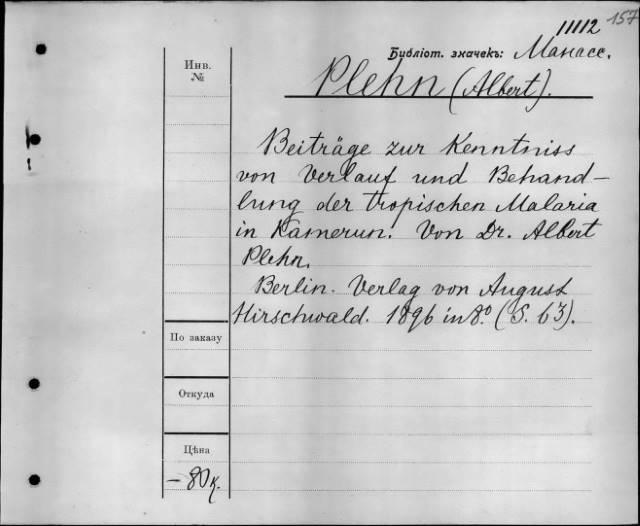 157
11112
Библіот. значекъ: Манасс.
Инв.
№
Plehn (Albert).
Beiträge zur Kenntniss
von Verlauf und Behand-
lung der tropischen Malaria
in Kamerun. Von Dr. Albert
Plehn.
Berlin. Verlag von August
Hirschwald. 1896 in 8.° (S. 63).
По заказу
Откуда
Цѣна
– 80 к.